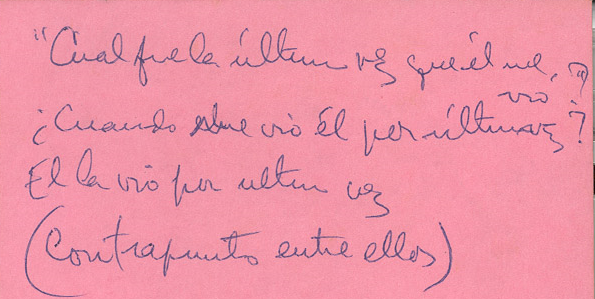 "Cual fue la última vez que él me vió?
¿Cuando me vió Él por última vez?
El la vió por ultima vez
(Contrapunto entre ellos)